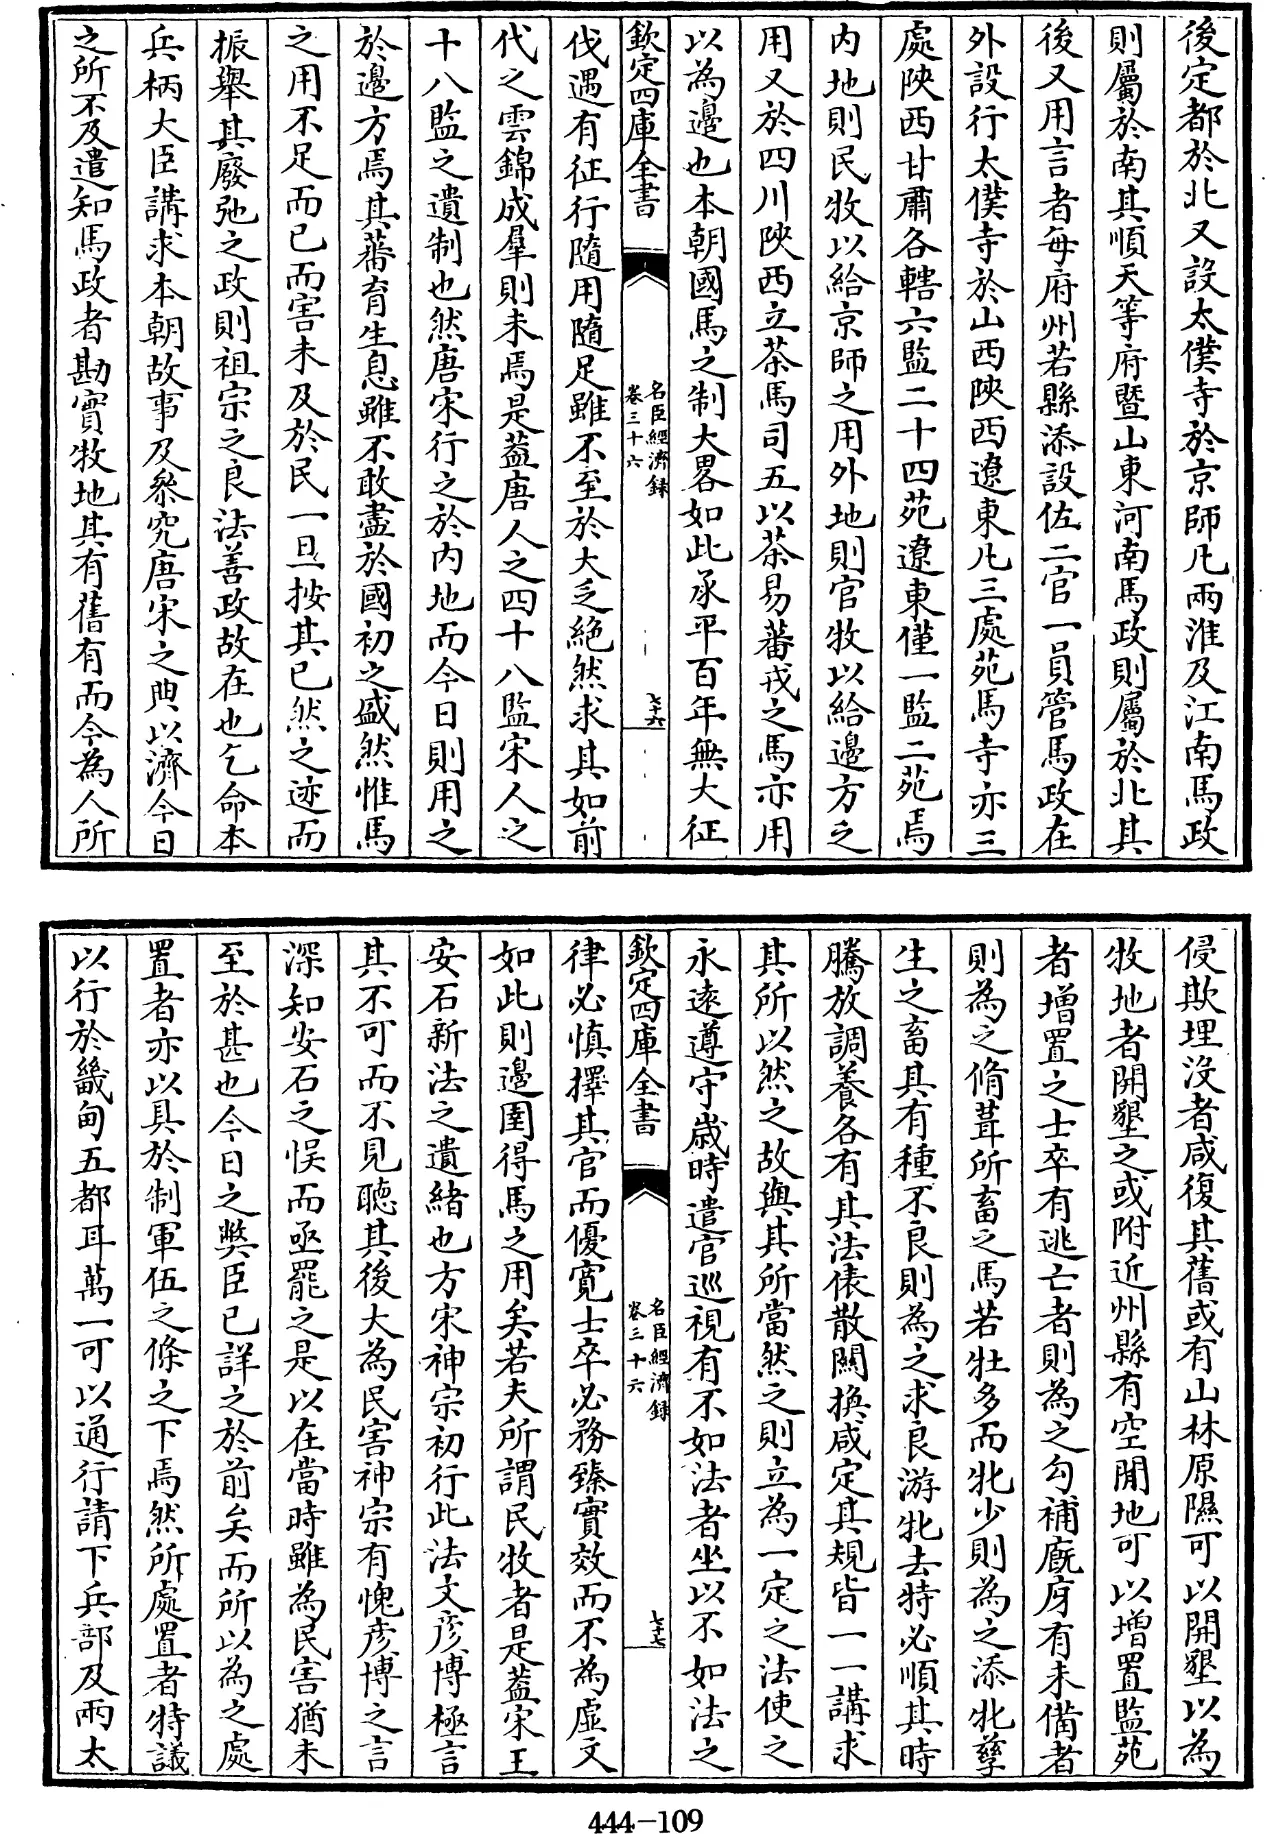 後定都於北又設太僕寺於京師凡兩淮及江南馬政
則屬於南其順天等府暨山東河南馬政則屬於北其
後又用言者每府州若縣添設佐二官一員管馬政在
外設行太僕寺於山西陜西遼東凡三處苑馬寺亦三
處陜西甘肅各轄六監二十四苑遼東僅一監二苑焉
内地則民牧以給京師之用外地則官牧以給邊方之
用又於四川陜西立茶馬司五以茶易蕃戎之馬亦用
以為邊也本朝國馬之制大畧如此承平百年無大征
欽定四庫全書
名臣經濟録
卷三十六
七十六
伐遇有征行隨用隨足雖不至於大乏絶然求其如前
代之雲錦成羣則未焉是葢唐人之四十八監宋人之
十八監之遺制也然唐宋行之於内地而今日則用之
於邊方焉其蕃育生息雖不敢盡於國初之盛然惟馬
之用不足而已而害未及於民一旦按其已然之迹而
振舉其廢弛之政則祖宗之良法善政故在也乞命本
兵柄大臣講求本朝故事及叅究唐宋之典以濟今日
之所不及遣知馬政者勘實牧地其有舊有而今為人所
侵欺埋没者咸復其舊或有山林原隰可以開墾以為
牧地者開墾之或附近州縣有空閒地可以增置監苑
者增置之士卒有逃亡者則為之勾補廐房有未備者
則為之脩葺所畜之馬若牡多而牝少則為之添牝孳
生之畜其有種不良則為之求良游牝去特必順其時
騰放調養各有其法俵散關換咸定其規皆一一講求
其所以然之故與其所當然之則立為一定之法使之
永遠遵守歲時遣官巡視有不如法者坐以不如法之
欽定四庫全書
名臣經濟録
卷三十六
七十七
律必慎擇其官而優寛士卒必務臻實效而不為虛文
如此則邊圉得馬之用矣若夫所謂民牧者是葢宋王
安石新法之遺緒也方宋神宗初行此法文彦博極言
其不可而不見聽其後大為民害神宗有愧彦博之言
深知安石之悞而亟罷之是以在當時雖為民害猶未
至於甚也今日之獘臣已詳之於前矣而所以為之處
置者亦以具於制軍伍之條之下焉然所處置者特議
以行於畿甸五都耳萬一可以通行請下兵部及兩太
444-109